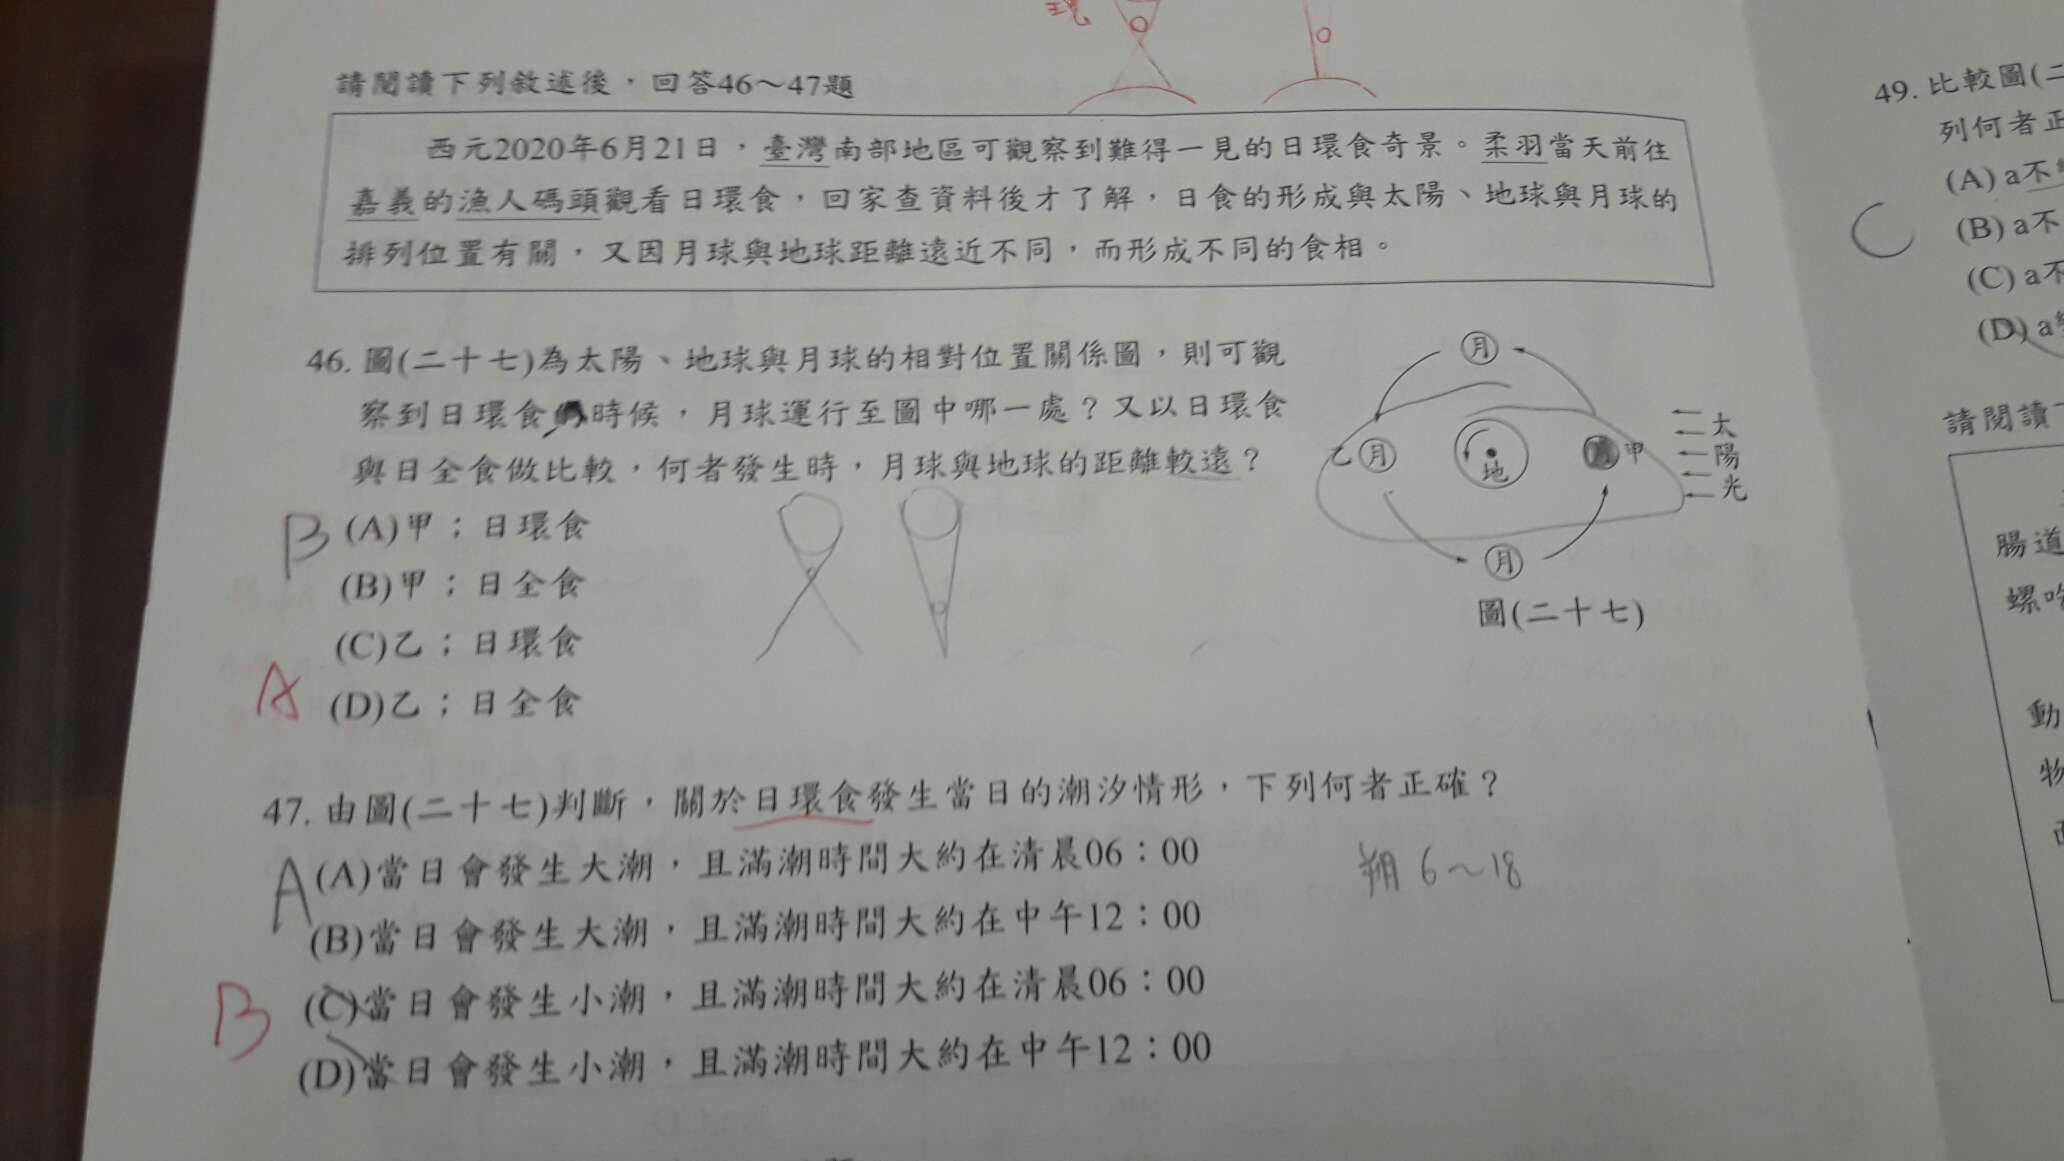 現
請閱讀下列敘述後，回答46～47題
西元2020年6月21日，臺灣南部地區可觀察到難得一見的日環食奇景。柔羽當天前往
嘉義的漁人碼頭觀看日環食，回家查資料後才了解，日食的形成與太陽、地球與月球的
排列位置有關，又因月球與地球距離遠近不同，而形成不同的食相。
46. 圖(二十七)為太陽、地球與月球的相對位置關係圖，則可觀
察到日環食時候，月球運行至圖中哪一處？又以日環食
與日全食做比較，何者發生時，月球與地球的距離較遠？
B
(A)甲；日環食
(B)甲；日全食
(C)乙；日環食
A
(D)乙；日全食
月
乙 月
地
甲
太
陽
光
月
圖(二十七)
47. 由圖(二十七)判斷，關於日環食發生當日的潮汐情形，下列何者正確？
A
(A)當日會發生大潮，且滿潮時間大約在清晨06：00
(B)當日會發生大潮，且滿潮時間大約在中午12：00
B
(C)當日會發生小潮，且滿潮時間大約在清晨06：00
(D)當日會發生小潮，且滿潮時間大約在中午12：00
朔 6～18
49. 比較圖(二
列何者正
(A) a不
C
(B) a不
(C) a不
(D) a
請閱讀
腸道
螺
動
物